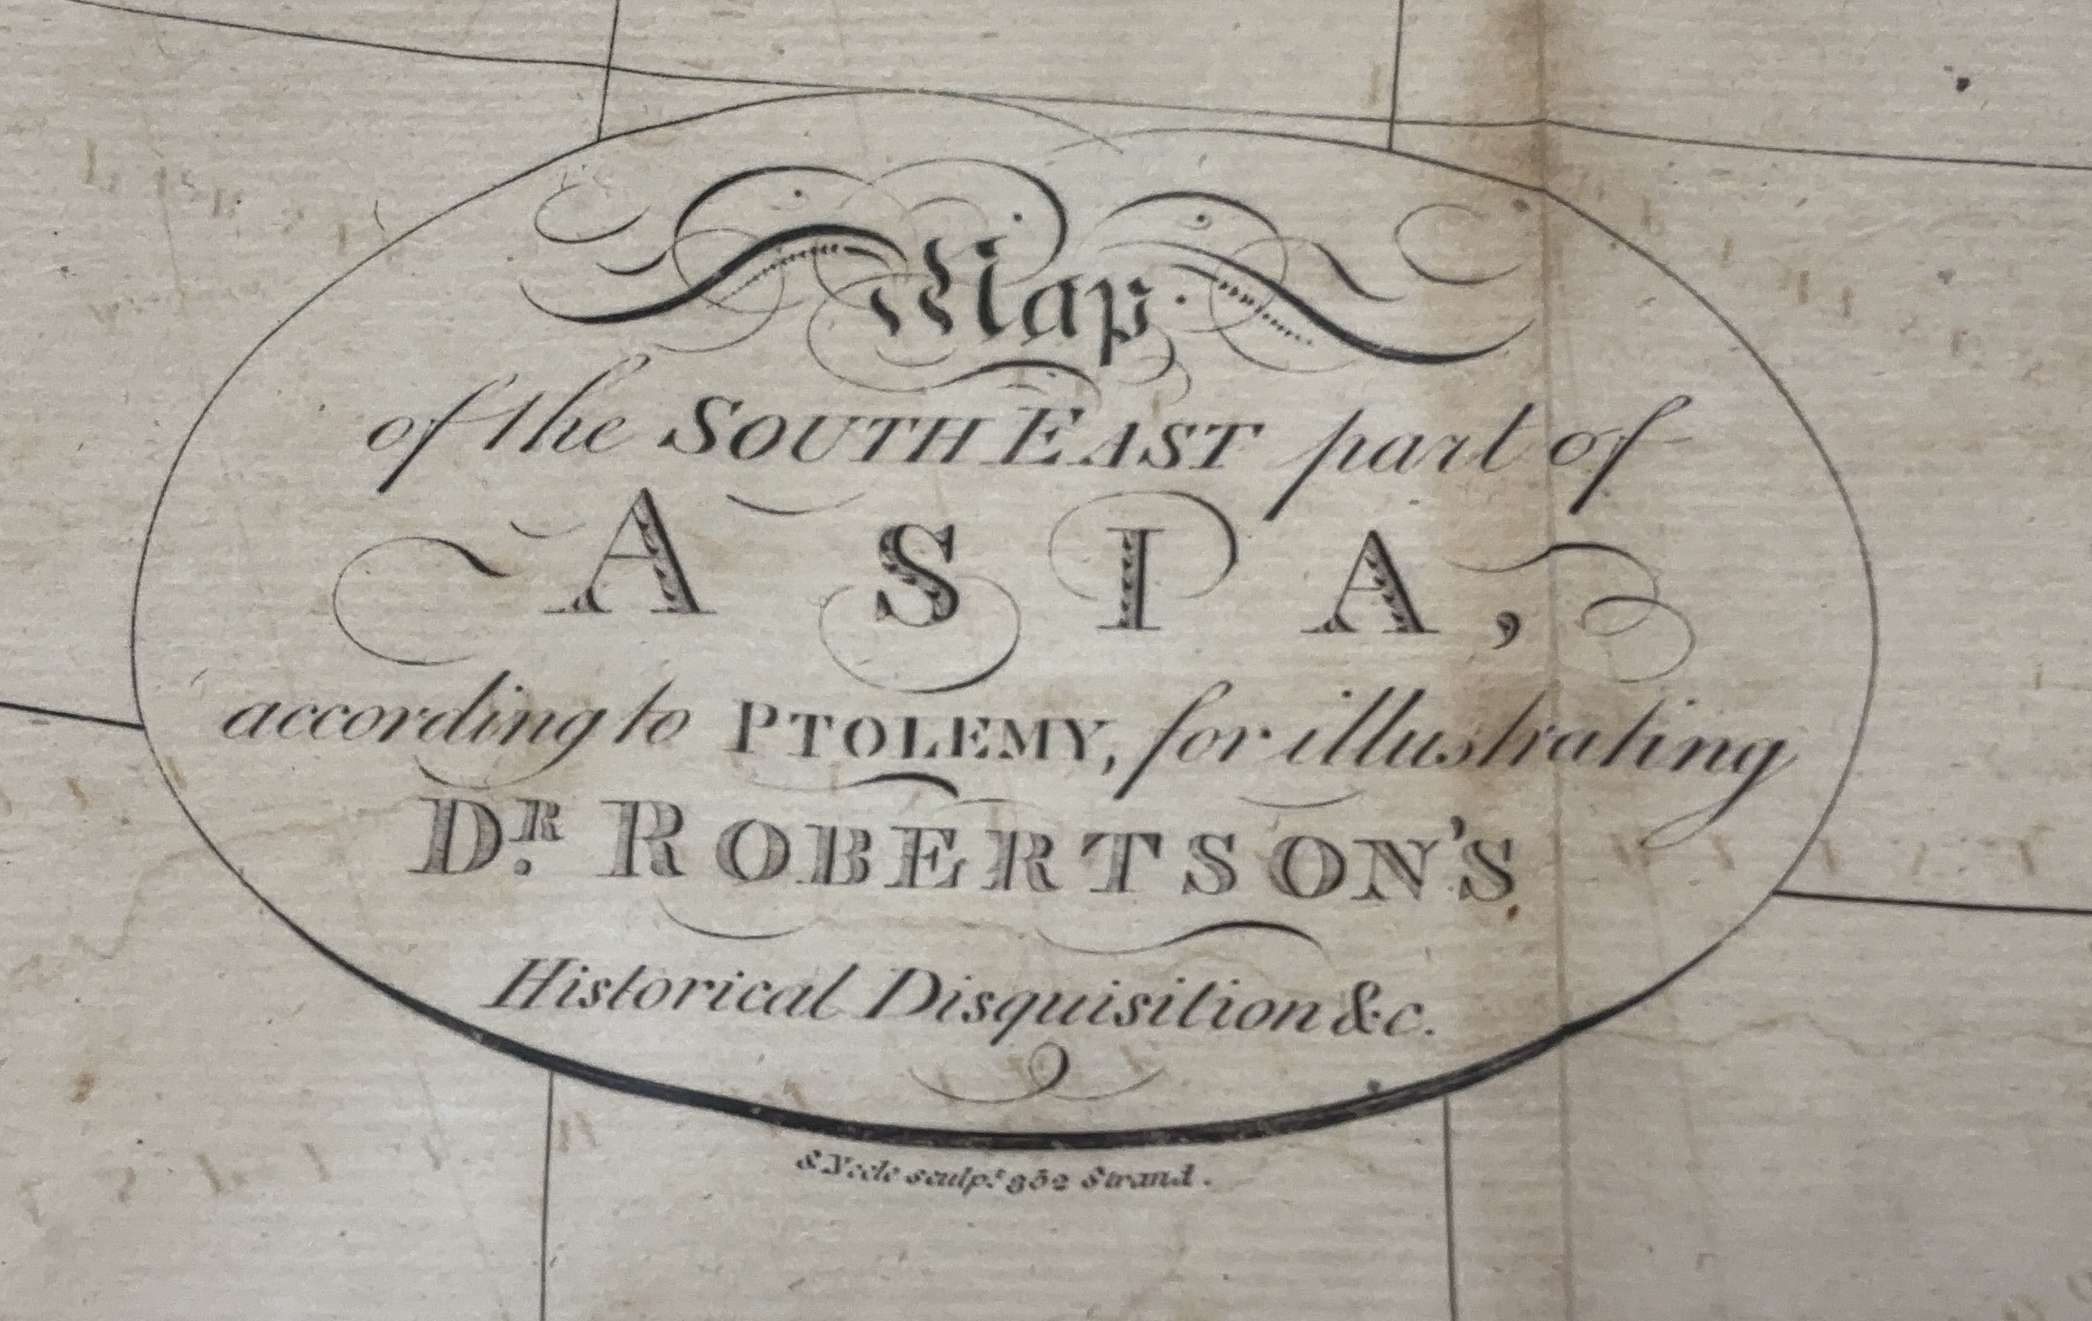 Map
of the SOUTH EAST part of
ASIA,
according to PTOLEMY, for illustrating
DR. ROBERTSON'S
Historical Disquisition &c.
S Neele sculpt. 352 Strand.